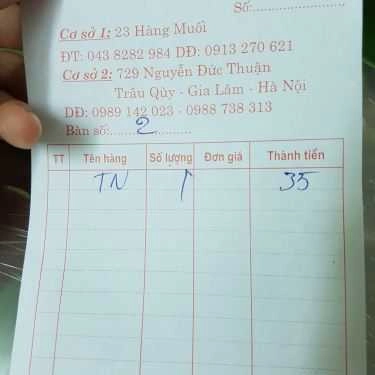 Số:
Cơ sở 1: 23 Hàng Muối
ĐT: 043 8282 984 DĐ: 0913 270 621
Cơ sở 2: 729 Nguyễn Đức Thuận
Trâu Qùy - Gia Lâm - Hà Nội
DĐ: 0989 142 023 - 0988 738 313
Bàn số: 2
TT Tên hàng Số lượng Đơn giá Thành tiền
TN 1 35